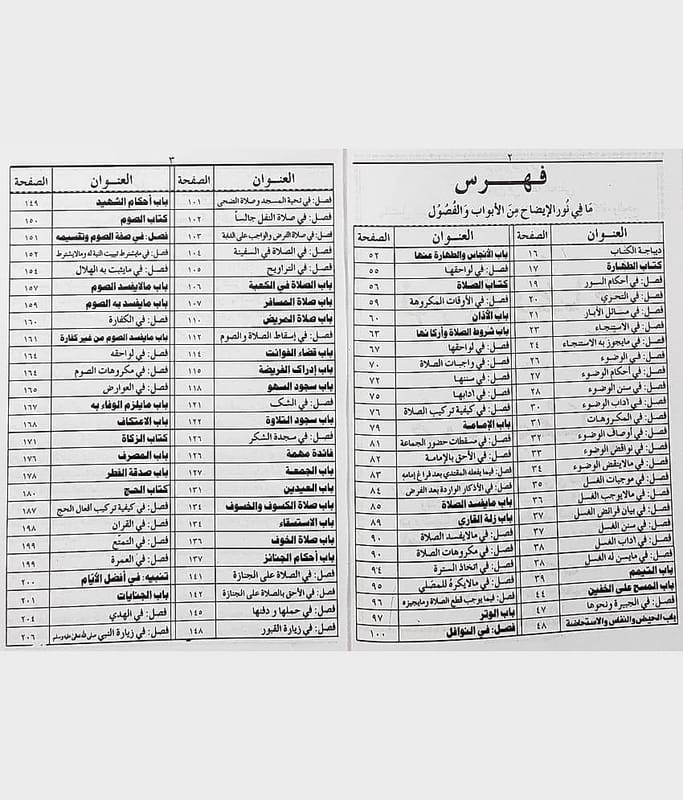 ٢
فهرس
مَا فِي نُور الإيضاح مِنَ الأبواب وَالفُصُوْل
العنوان الصفحة
ديباجة الكتاب ١٦
كتاب الطهارة ١٧
فصل: في أحكام السور ١٩
فصل: في التحري ٢٠
فصل: في مسائل الآبار ٢١
فصل: في الاستنجاء ٢٣
فصل: في مايجوز به الاستنجاء ٢٤
فصل: في الوضوء ٢٦
فصل: في أحكام الوضوء ٢٧
فصل: في سنن الوضوء ٢٨
فصل: في اداب الوضوء ٣٠
فصل: في المكروهات ٣١
فصل: في أوصاف الوضوء ٣٢
فصل: في نواقض الوضوء ٣٣
فصل: في مالاينقض الوضوء ٣٤
فصل: في موجبات الغسل ٣٥
فصل: في مالايوجب الغسل ٣٦
فصل: في بيان فرائض الغسل ٣٧
فصل: في سنن الغسل ٣٧
فصل: في اداب الغسل ٣٨
فصل: في مايسن له الغسل ٣٨
باب التيمم ٣٩
باب المسح على الخفين ٤٤
فصل: في الجبيرة ونحوها ٤٧
باب الحيض والنفاس والاستحاضة ٤٨
العنوان الصفحة
باب الأنجاس والطهارة عنها ٥٢
فصل: في لواحقها ٥٥
كتاب الصلاة ٥٦
فصل: في الأوقات المكروهة ٥٩
باب الأذان ٦٠
باب شروط الصلاة وأركانها ٦٣
فصل: في لواحقها ٦٧
فصل: في واجبات الصلاة ٧٠
فصل: في سننها ٧٢
فصل: في ادابها ٧٥
فصل: في كيفية تركيب الصلاة ٧٦
باب الإمامة ٧٩
فصل: في مسقطات حضور الجماعة ٨١
فصل: في الأحق بالإمامة ٨٢
فصل: فيما يفعله المقتدي بعد فراغ إمامه ٨٣
فصل: في الأذكار الواردة بعد الفرض ٨٤
باب مايفسد الصلاة ٨٥
باب زلة القاري ٨٩
فصل: في مالايفسد الصلاة ٩٠
فصل: في مكروهات الصلاة ٩٠
فصل: في اتخاذ السترة ٩٤
فصل: في مالايكره للمصلي ٩٥
فصل: فيما يوجب قطع الصلاة ومايجيزه ٩٦
باب الوتر ٩٧
فصل: في النوافل ١٠٠
٣
العنوان الصفحة
فصل: في تحية المسجد وصلاة الضحى ١٠١
فصل: في صلاة النفل جالساً ١٠٢
فصل: في صلاة الفرض والواجب على الدابة ١٠٣
فصل: في الصلاة في السفينة ١٠٤
فصل: في التراويح ١٠٥
باب الصلاة في الكعبة ١٠٦
باب صلاة المسافر ١٠٧
باب صلاة المريض ١١٠
فصل: في إسقاط الصلاة والصوم ١١٢
باب قضاء الفوائت ١١٤
باب إدراك الفريضة ١١٥
باب سجود السهو ١١٨
فصل: في الشك ١٢١
باب سجود التلاوة ١٢٢
فصل: في سجدة الشكر ١٢٦
فائدة مهمة ١٢٦
باب الجمعة ١٢٧
باب العيدين ١٣١
باب صلاة الكسوف والخسوف ١٣٤
باب الاستسقاء ١٣٤
باب صلاة الخوف ١٣٦
باب أحكام الجنائز ١٣٧
فصل: في الصلاة على الجنازة ١٤١
فصل: في الأحق بالصلاة على الجنازة ١٤٢
فصل: في حملها و دفنها ١٤٥
فصل: في زيارة القبور ١٤٨
العنوان الصفحة
باب أحكام الشهيد ١٤٩
كتاب الصوم ١٥٠
فصل: في صفة الصوم وتقسيمه ١٥١
فصل: في مايشترط تبييت النية له ومالايشترط ١٥٢
فصل: في مايثبت به الهلال ١٥٤
باب مالايفسد الصوم ١٥٧
باب مايفسد به الصوم ١٥٩
فصل: في الكفارة ١٦٠
باب مايفسد الصوم من غير كفارة ١٦١
فصل: في لواحقه ١٦٤
فصل: في مكروهات الصوم ١٦٤
فصل: في العوارض ١٦٥
باب مايلزم الوفاء به ١٦٧
باب الاعتكاف ١٦٨
كتاب الزكاة ١٧١
باب المصرف ١٧٦
باب صدقة الفطر ١٧٨
كتاب الحج ١٨٠
فصل: في كيفية تركيب أفعال الحج ١٨٧
فصل: في القران ١٩٨
فصل: في التمتع ١٩٩
فصل: في العمرة ١٩٩
تنبيه: في أفضل الأيام ٢٠٠
باب الجنايات ٢٠١
فصل: في الهدي ٢٠٤
فصل: في زيارة النبي صلى الله عليه وسلم ٢٠٦